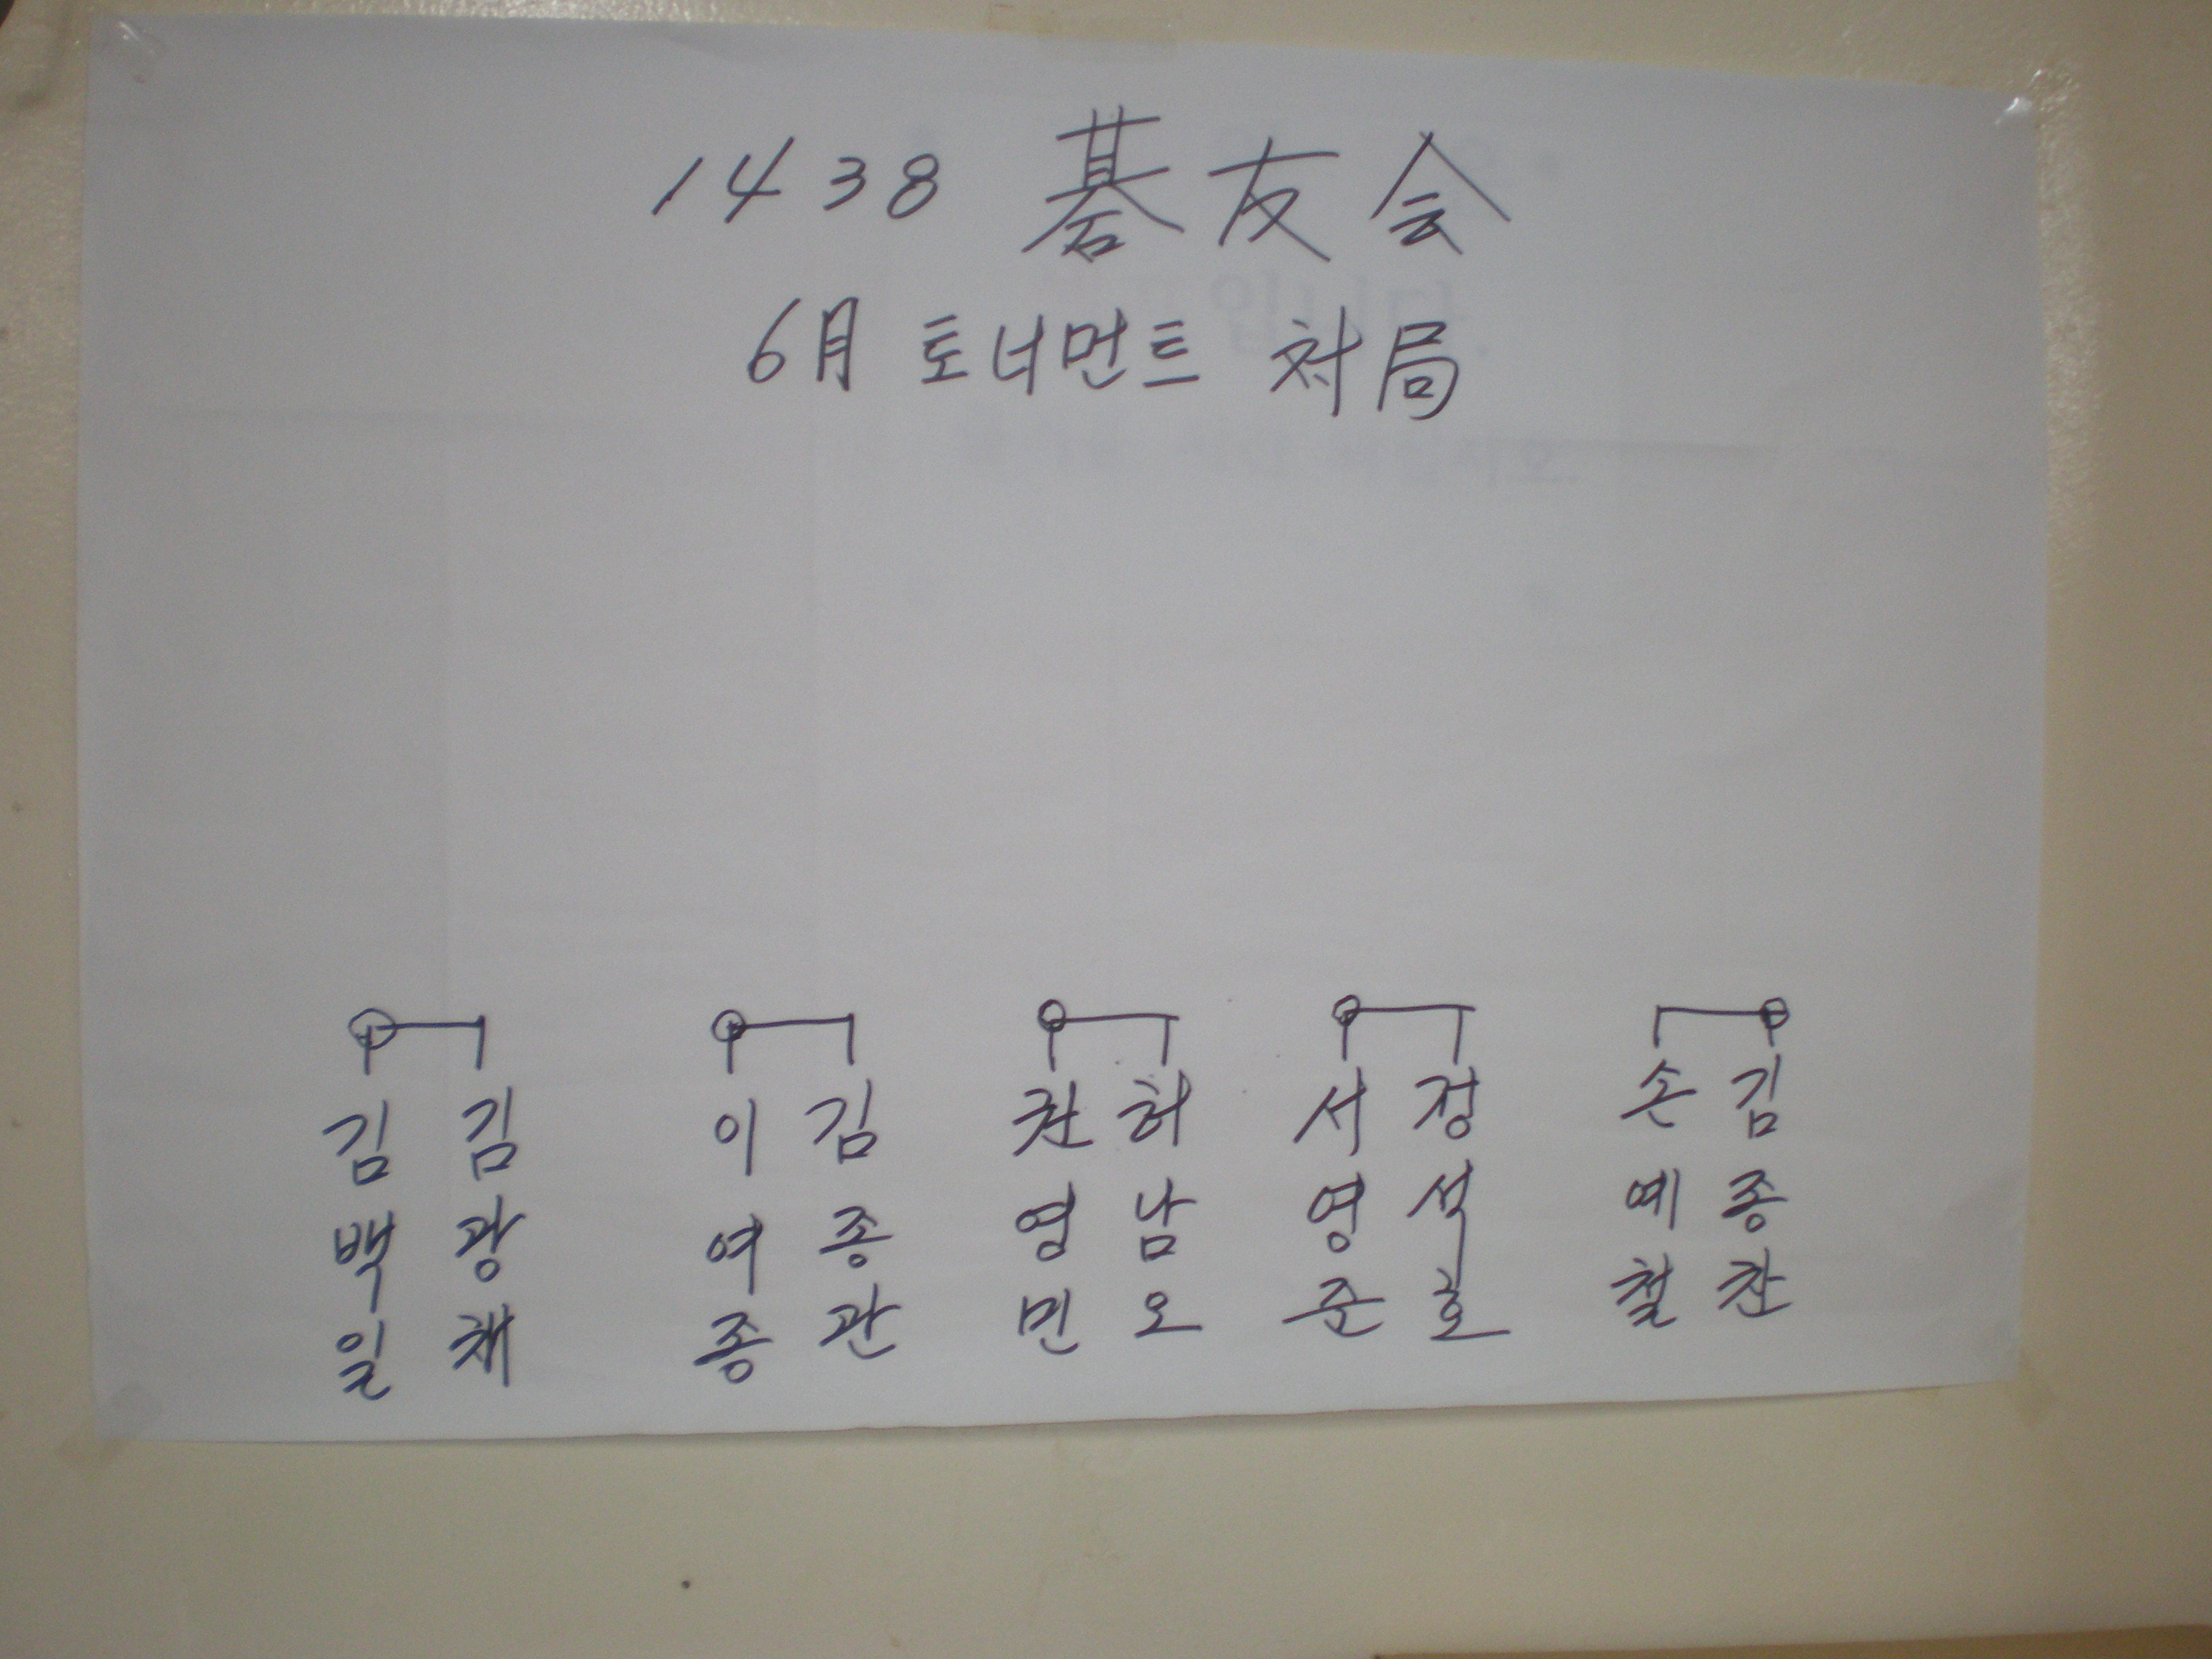 1438 碁友会
6月 토너먼트 対局
김백일
김광채
이여종
김종관
권영민
허남오
서영준
정석호
손예철
김종찬